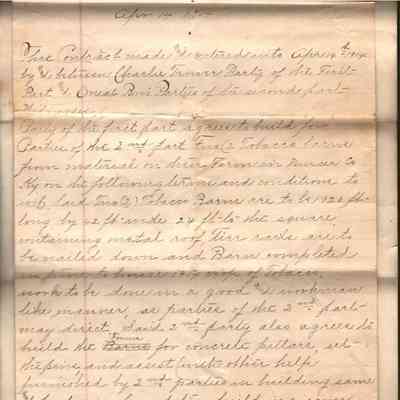 This Contract made & entered into Apr 14th 1914
by & between Charlie Turner Party of the First
Part & Oneal Bros Parties of the second part
Witnesses
Party of the first part agrees to build for
Parties of the 2nd part Two (2) Tobacco barns
from material on their Farm in Mercer Co
Ky on the following terms and conditions to
wit, said Two (2) Tobaco Barns are to be 128 ft
long by 42 ft wide 24 ft to the square
containing metal roof Tier rails are to
be nailed down and Barn completed
in time to house 1914 crop of Tobacco,
work to be done in a good & workman
like manner, as parties of the 2nd part
may direct. Said 2nd party also agrees to
build the forms for concrete pillars, set
the pins, and assist (with other help
furnished by 2nd parties in building same